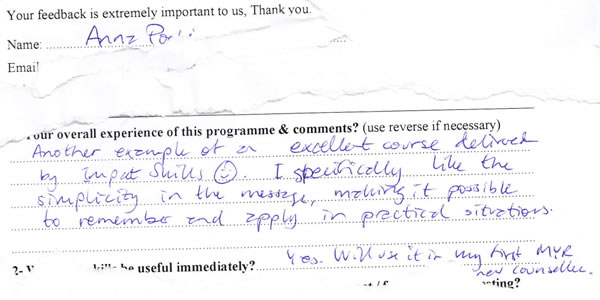 Your feedback is extremely important to us, Thank you.
Name: Anna
Email
your overall experience of this programme & comments? (use reverse if necessary)
Another example of an excellent course delivered
by Impact Skills ☺. I specifically like the
simplicity in the message, making it possible
to remember and apply in practical situations.
be useful immediately? Yes. Will use it in my first MYR
new counsellee.